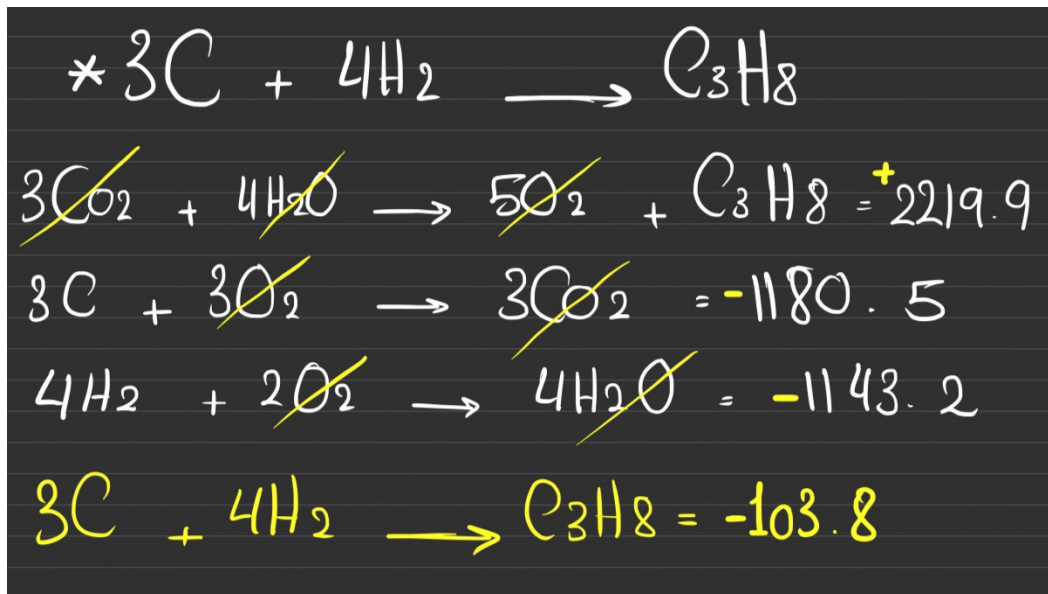 *3C + 4H2 → C3H8
3CO2 + 4H2O → 5O2 + C3H8 = +2219.9
3C + 3O2 → 3CO2 = -1180.5
4H2 + 2O2 → 4H2O = -1143.2
3C + 4H2 → C3H8 = -103.8